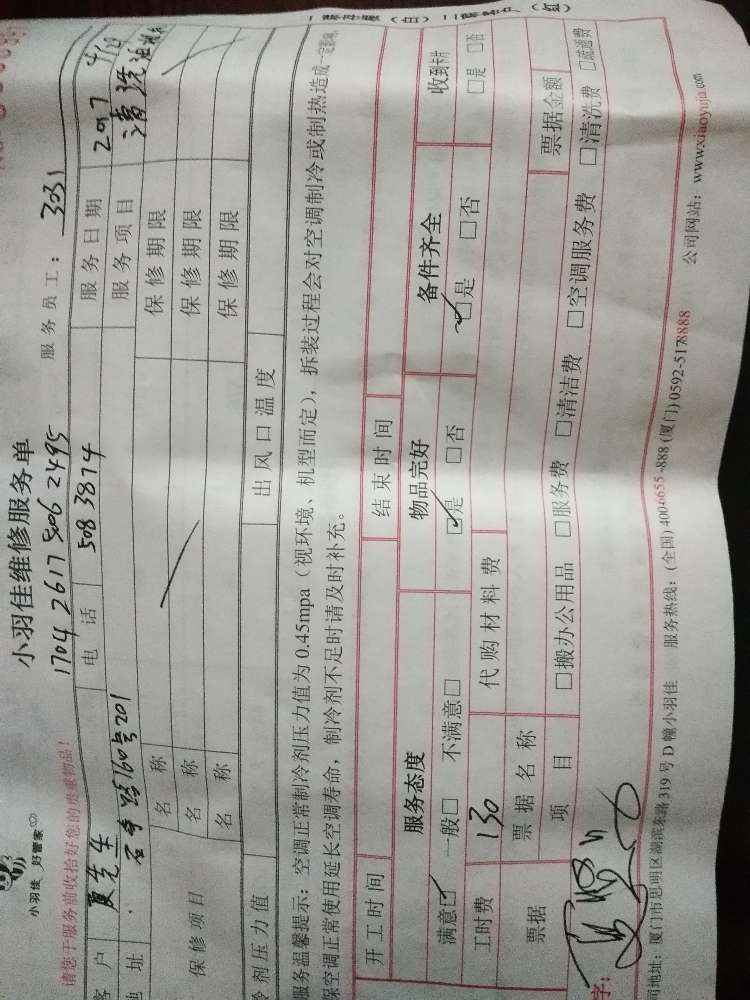 小羽佳 好管家
小羽佳维修服务单
170426178062495
服务员工： 3031
请您于服务前收拾好您的贵重物品！
客户 夏先生 电话 5083874 服务日期
地址 160号201 服务项目 清洗油烟机
保修项目 名称 保修期限
名称 保修期限
名称 保修期限
冷剂压力值 出风口温度
服务温馨提示：空调正常制冷剂压力值为0.45mpa（视环境、机型而定），拆装过程会对空调制冷或制热造成一定影响，
保空调正常使用延长空调寿命，制冷剂不足时请及时补充。
开工时间 结束时间
服务态度 物品完好 备件齐全 收到卡片
满意☑ 一般□ 不满意□ ☑是 □否 ☑是 □否 □是 □否
工时费 130 代购材料费
票据 票据名称 票据金额
项目 □搬办公用品 □服务费 □清洁费 □空调服务费 □清洗费 □疏通费
字：
司地址：厦门市思明区湖滨东路319号D幢小羽佳 服务热线：(全国) 4006655-888 (厦门) 0592-5178888 公司网站：www.xiaoyujia.com